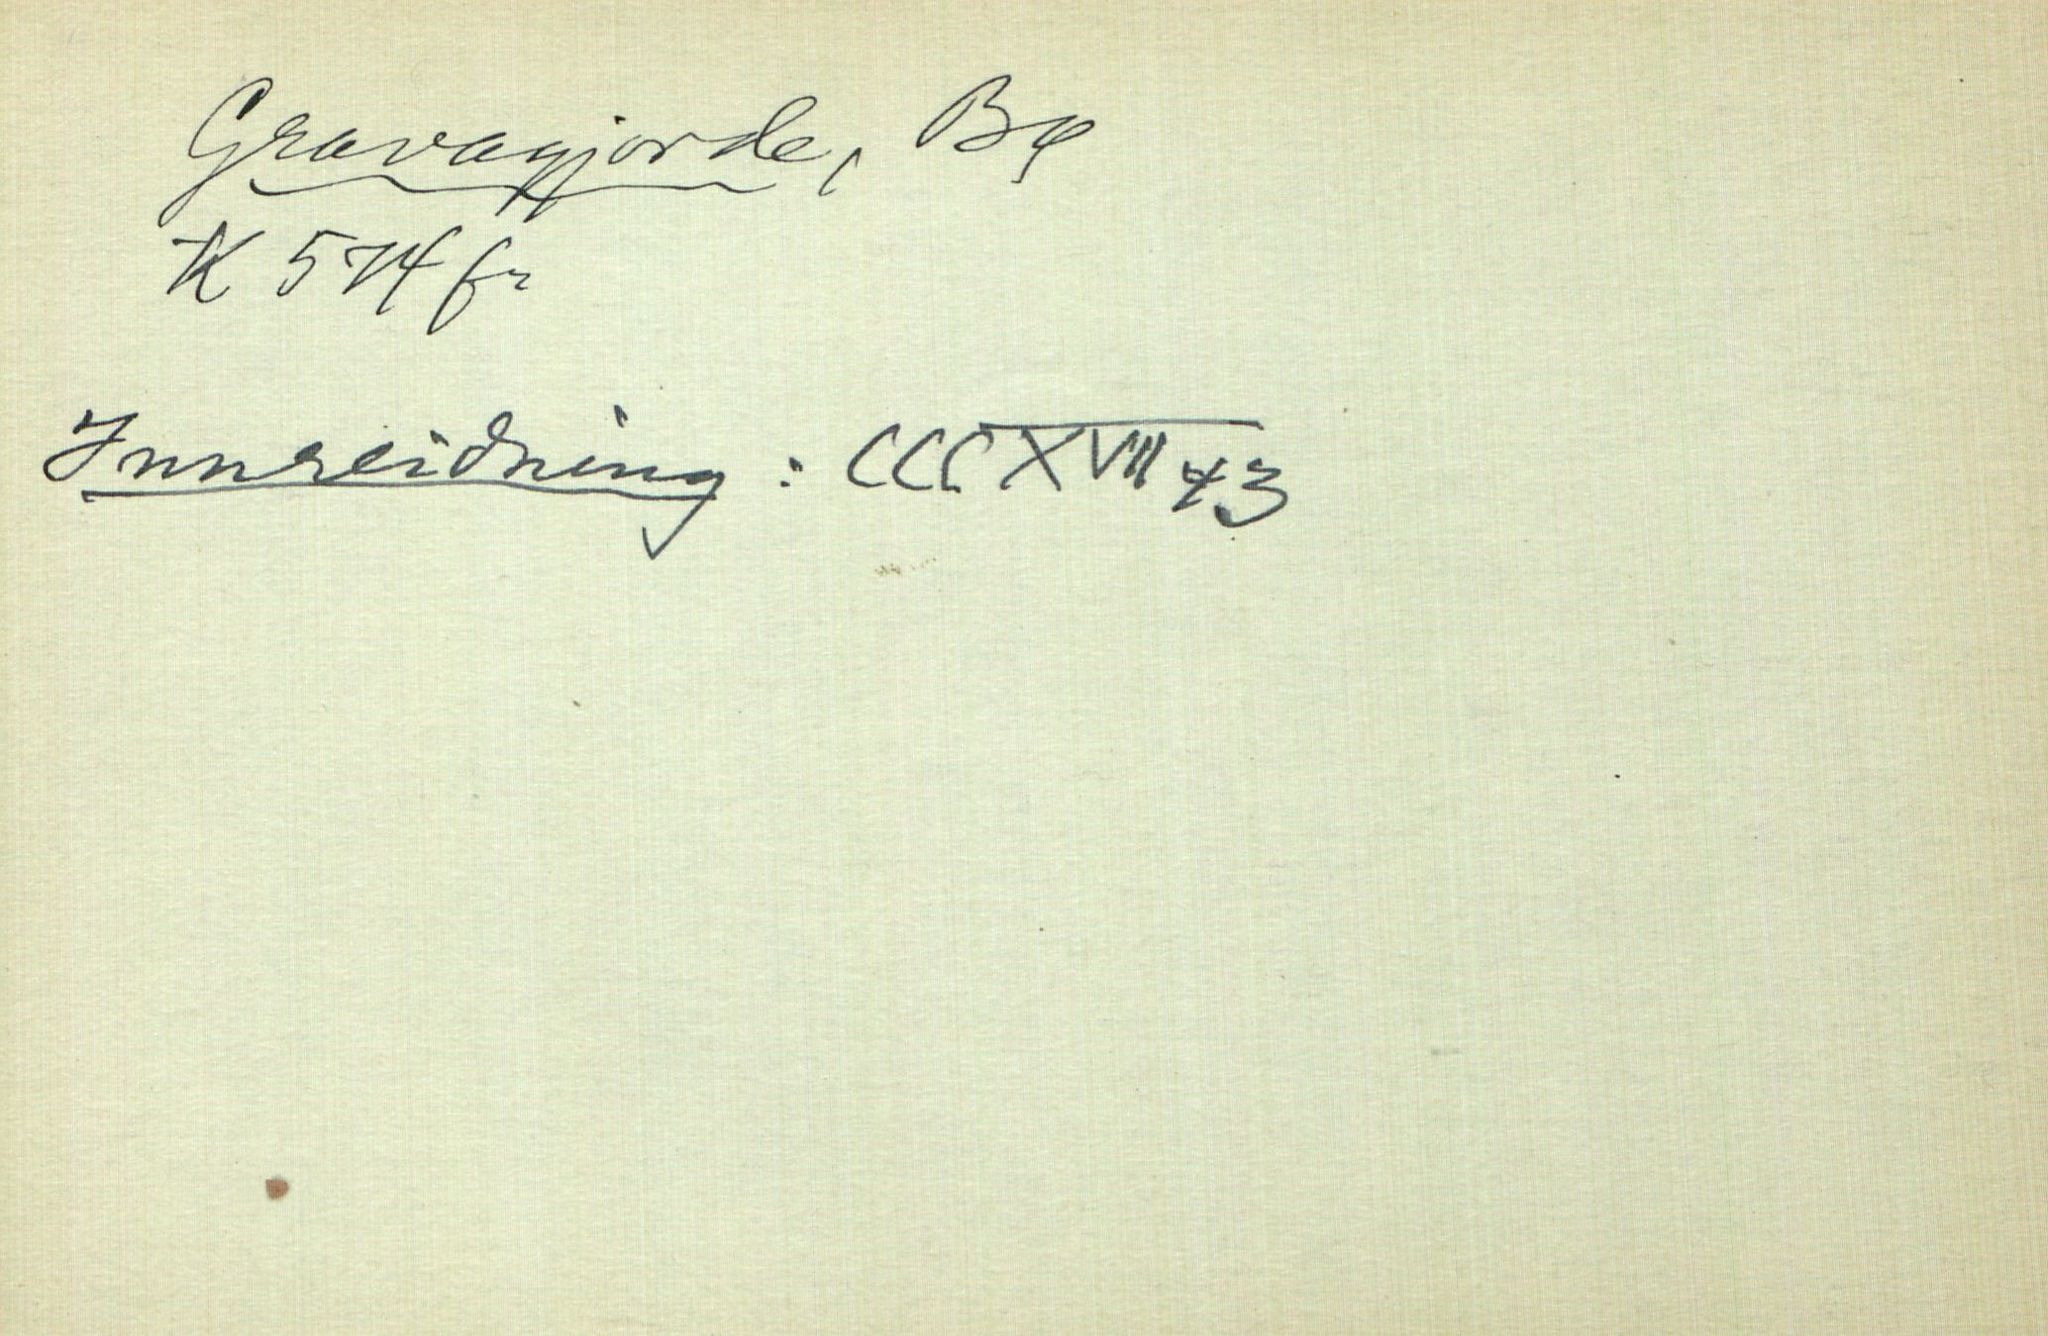 Gravagjorde, Bø
K 574 fr
Innreidning : CCCXVII 43